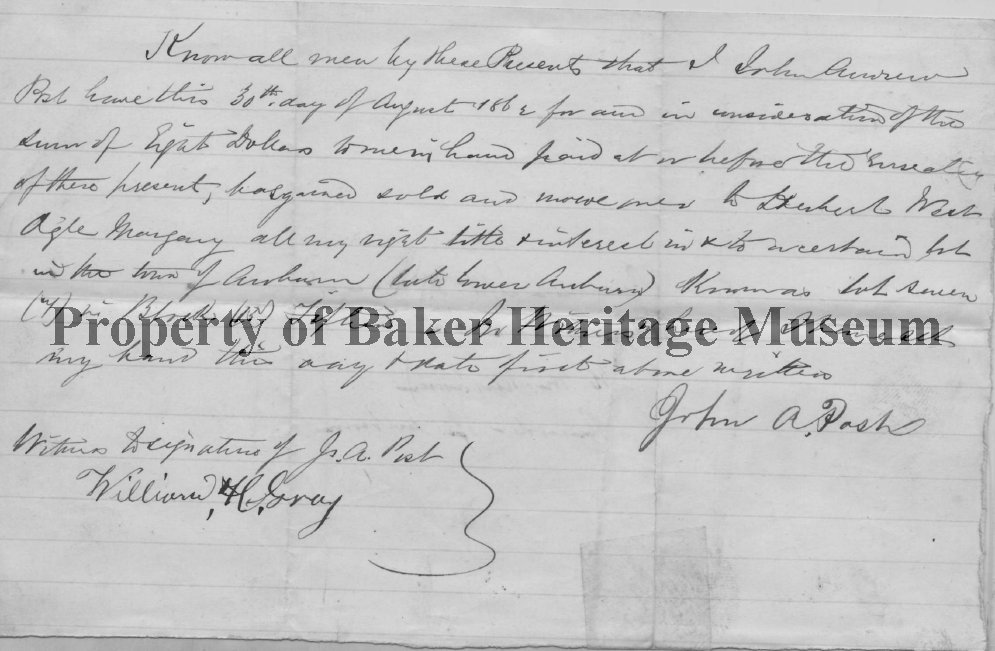 Know all men by these Presents that I John Andrew
Post have this 30th day of August 1862 for and in consideration of the
sum of Eight Dollars to me in hand paid at or before the
of these present, bargained sold and over to Herbert West
Agle all my right title & interest in & to a certain lot
in the town of Auburn (late lower Auburn) Known as lot seven
(7) in Block
Property of Baker Heritage Museum
my hand this day & date first above written
John A. Post
Witness to signature of J. A. Post
William H. Gray